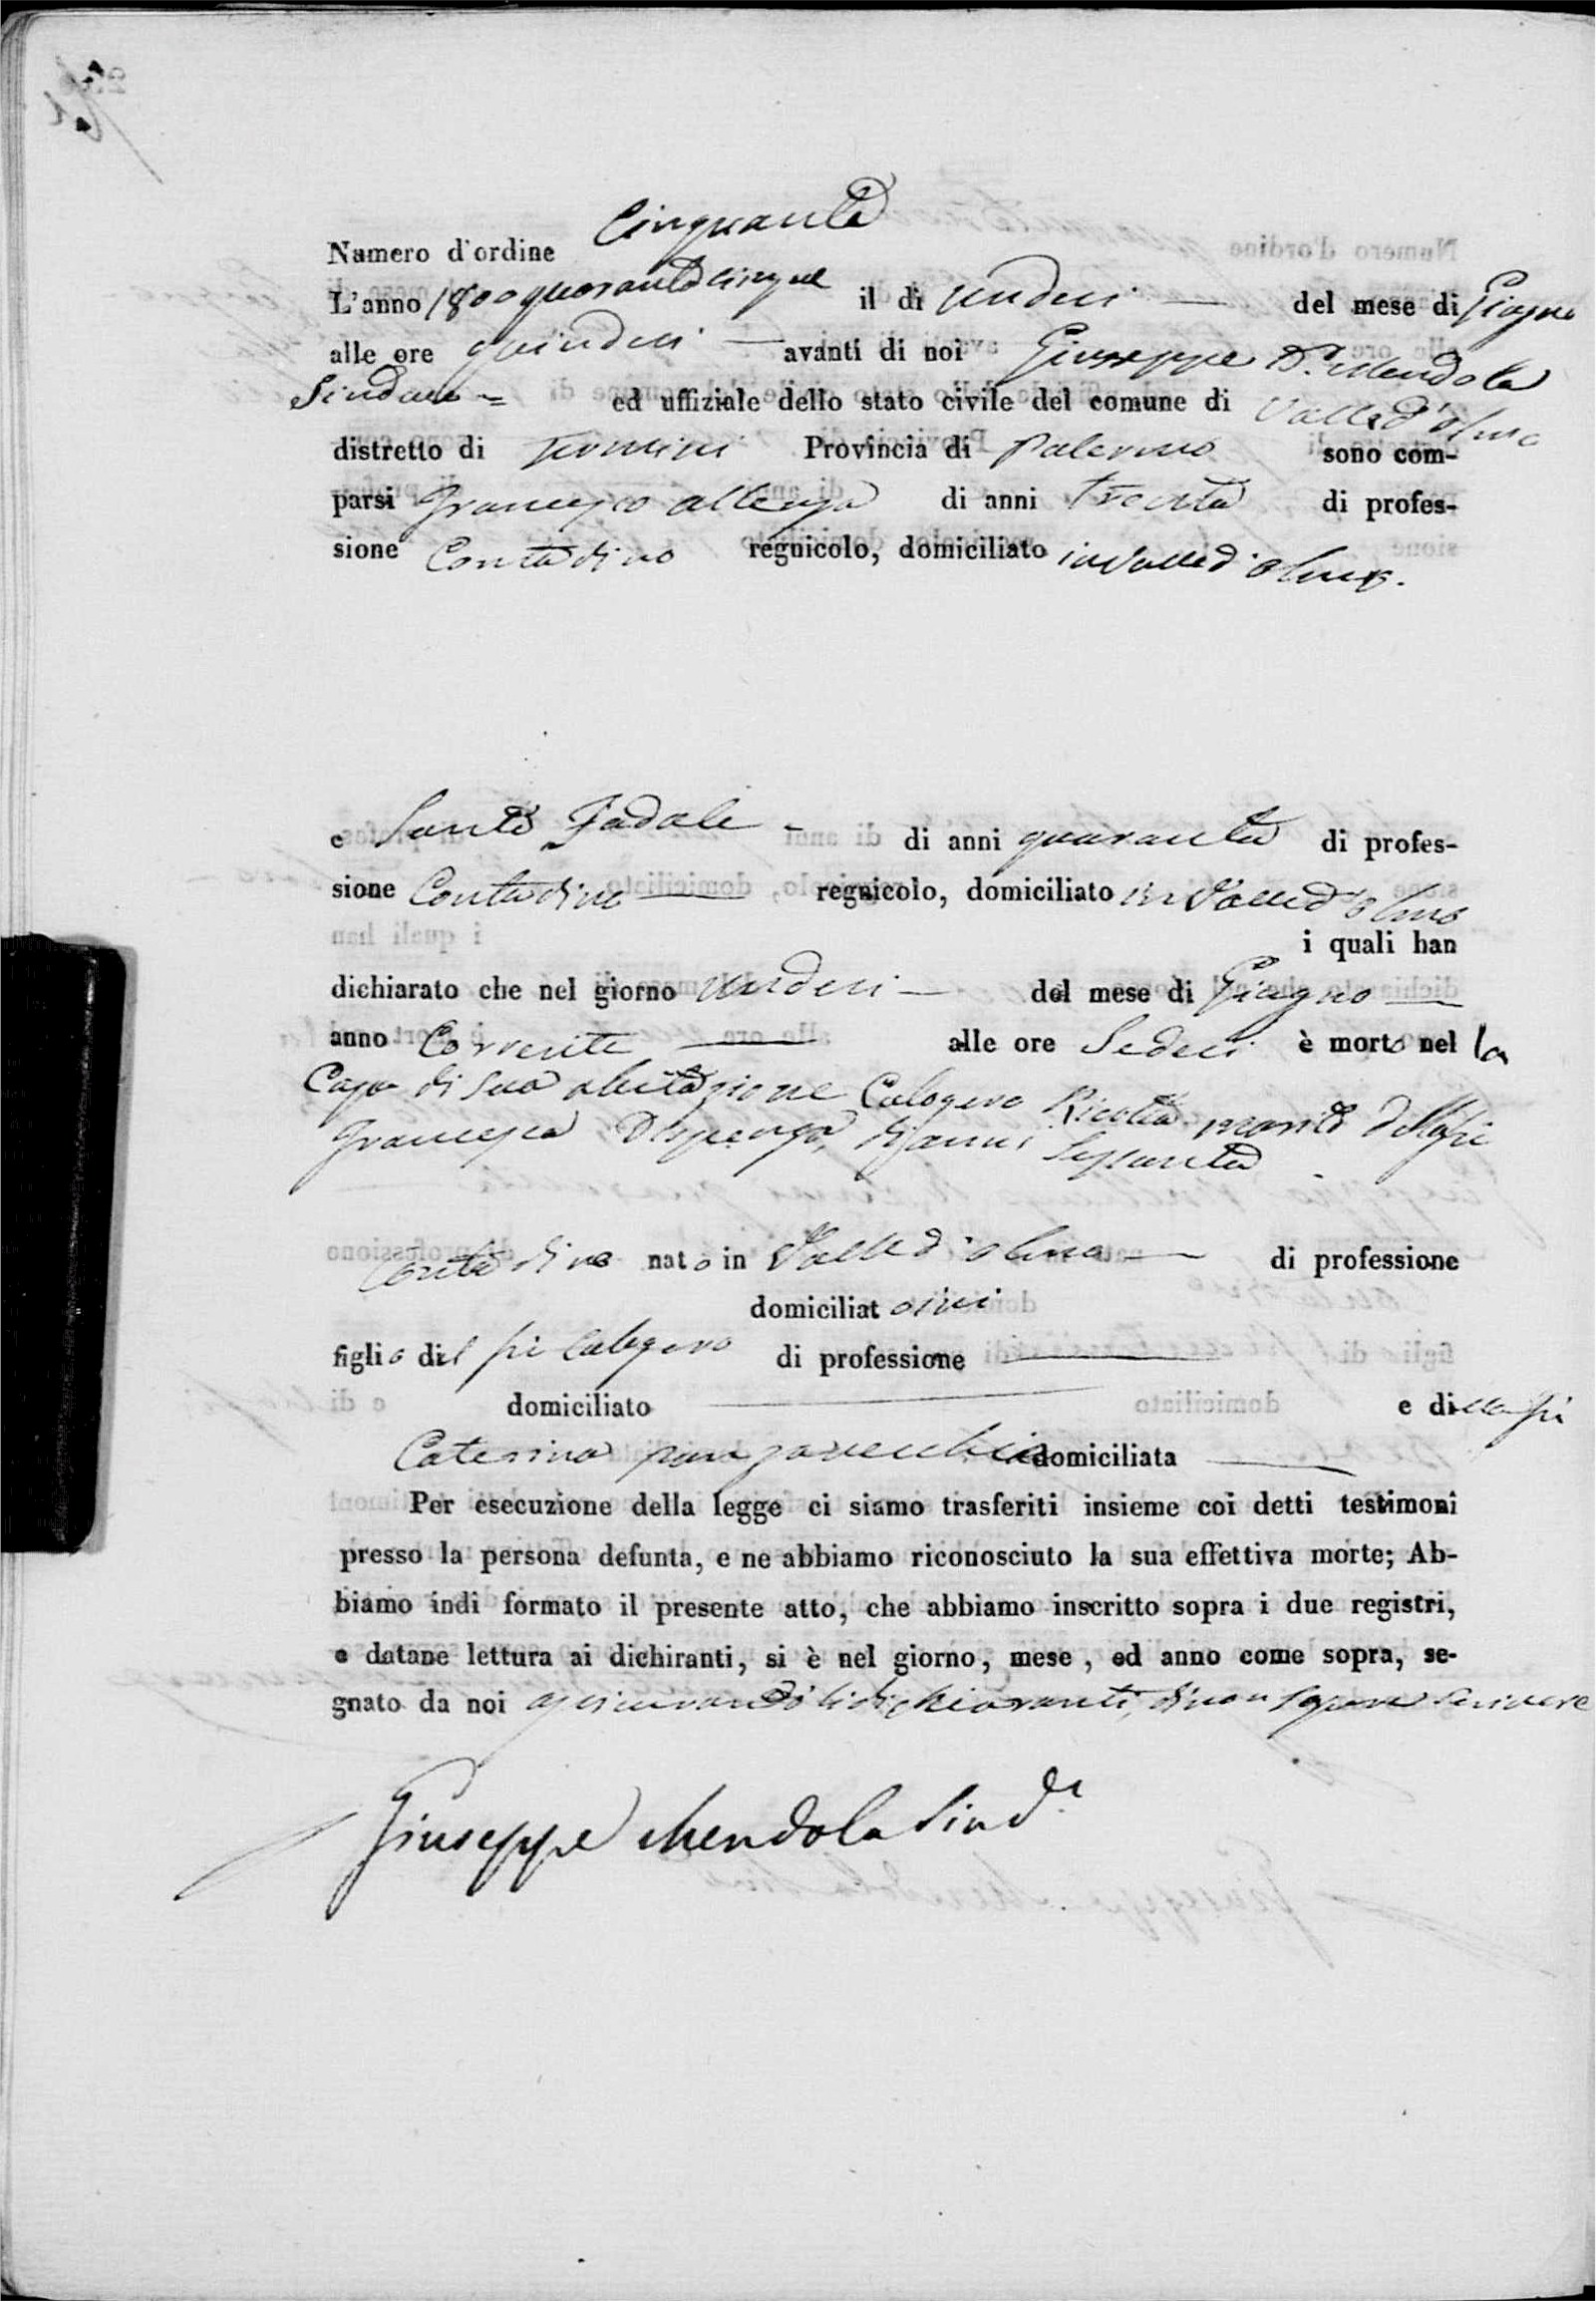 Cinquanta
Numero d'ordine
L'anno 1800quarantacinque il dì undeci del mese di Giugno
alle ore quindeci avanti di noi Giuseppe Dr. Mendola
Sindaco = ed uffiziale dello stato civile del comune di Valled'olmo
distretto di Termini Provincia di Palermo sono com-
parsi Francesco di anni Trenta di profes-
sione Contadino regnicolo, domiciliato in Valled'olmo.
e Santo Fadale di anni quaranta di profes-
sione Contadino regnicolo, domiciliato in Valled'olmo
i quali han
dichiarato che nel giorno undeci del mese di Giugno
anno Corrente alle ore Sedeci è morto nel la
Casa di sua abitazione Calogero Ricotta marito della fu
Francesca Dispenza, di anni Sessanta
Contadino nato in Valled'olmo di professione
domiciliat o ivi
figlio del fu Calogero di professione
domiciliato e della fu
Caterina panzavecchia domiciliata
Per esecuzione della legge ci siamo trasferiti insieme coi detti testimoni
presso la persona defunta, e ne abbiamo riconosciuto la sua effettiva morte; Ab-
biamo indi formato il presente atto, che abbiamo inscritto sopra i due registri,
e datane lettura ai dichiranti, si è nel giorno, mese, ed anno come sopra, se-
gnato da noi assicurando li dichiaranti, di non sapere scrivere
Giuseppe Mendola Sind.